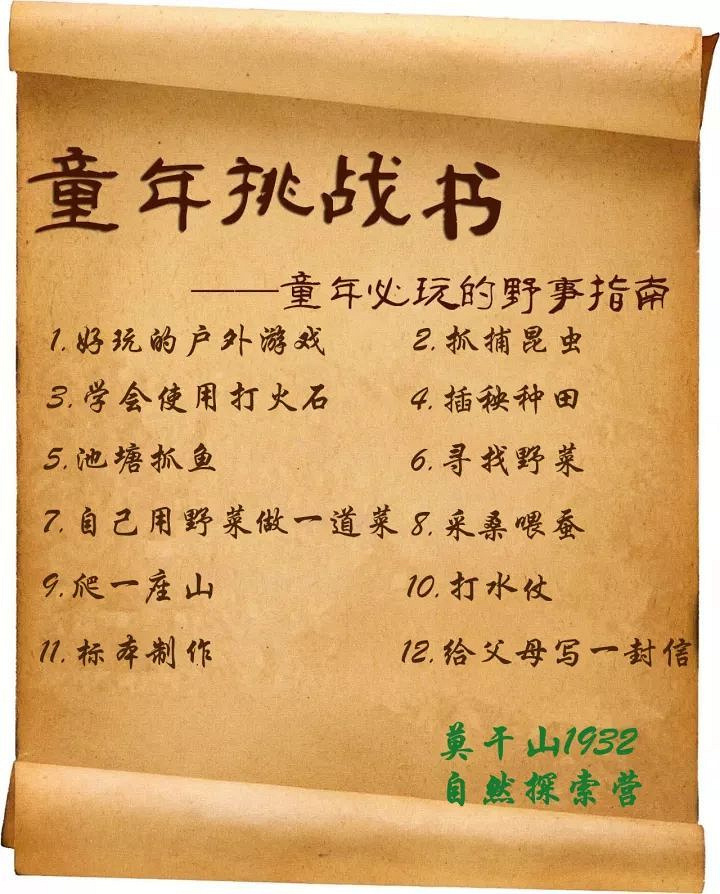 童年挑战书
——童年必玩的野事指南
1.好玩的户外游戏 2.抓捕昆虫
3.学会使用打火石 4.插秧种田
5.池塘抓鱼 6.寻找野菜
7.自己用野菜做一道菜 8.采桑喂蚕
9.爬一座山 10.打水仗
11.标本制作 12.给父母写一封信
莫干山1932
自然探索营